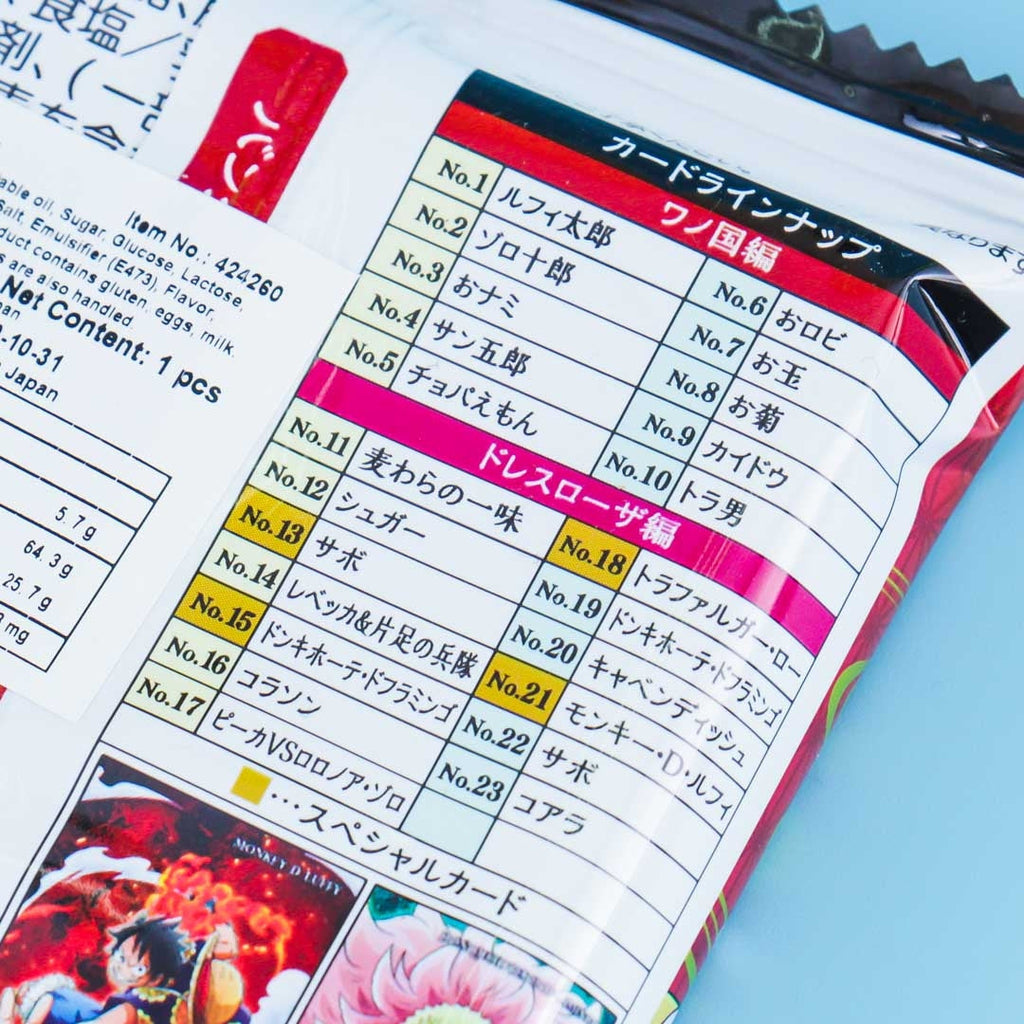 食塩/
剤、(一
able oil, Sugar, Glucose, Lactose,
Salt, Emulsifier (E473), Flavor,
duct contains gluten, eggs, milk.
s are also handled
Item No.: 424260
Net Content: 1 pcs
-10-31
Japan
5.7g
64.3g
25.7g
mg
カードラインナップ
ワノ国編
No.1 ルフィ太郎
No.2 ゾロ十郎
No.3 おナミ
No.4 サン五郎
No.5 チョパえもん
No.6 おロビ
No.7 お玉
No.8 お菊
No.9 カイドウ
No.10 トラ男
ドレスローザ編
No.11 麦わらの一味
No.12 シュガー
No.13 サボ
No.14 レベッカ&片足の兵隊
No.15 ドンキホーテ・ドフラミンゴ
No.16 コラソン
No.17 ピーカVSロロノア・ゾロ
No.18 トラファルガー・ロー
No.19 ドンキホーテ・ドフラミンゴ
No.20 キャベンディッシュ
No.21 モンキー・D・ルフィ
No.22 サボ
No.23 コアラ
…スペシャルカード
MONKEY D LUFFY